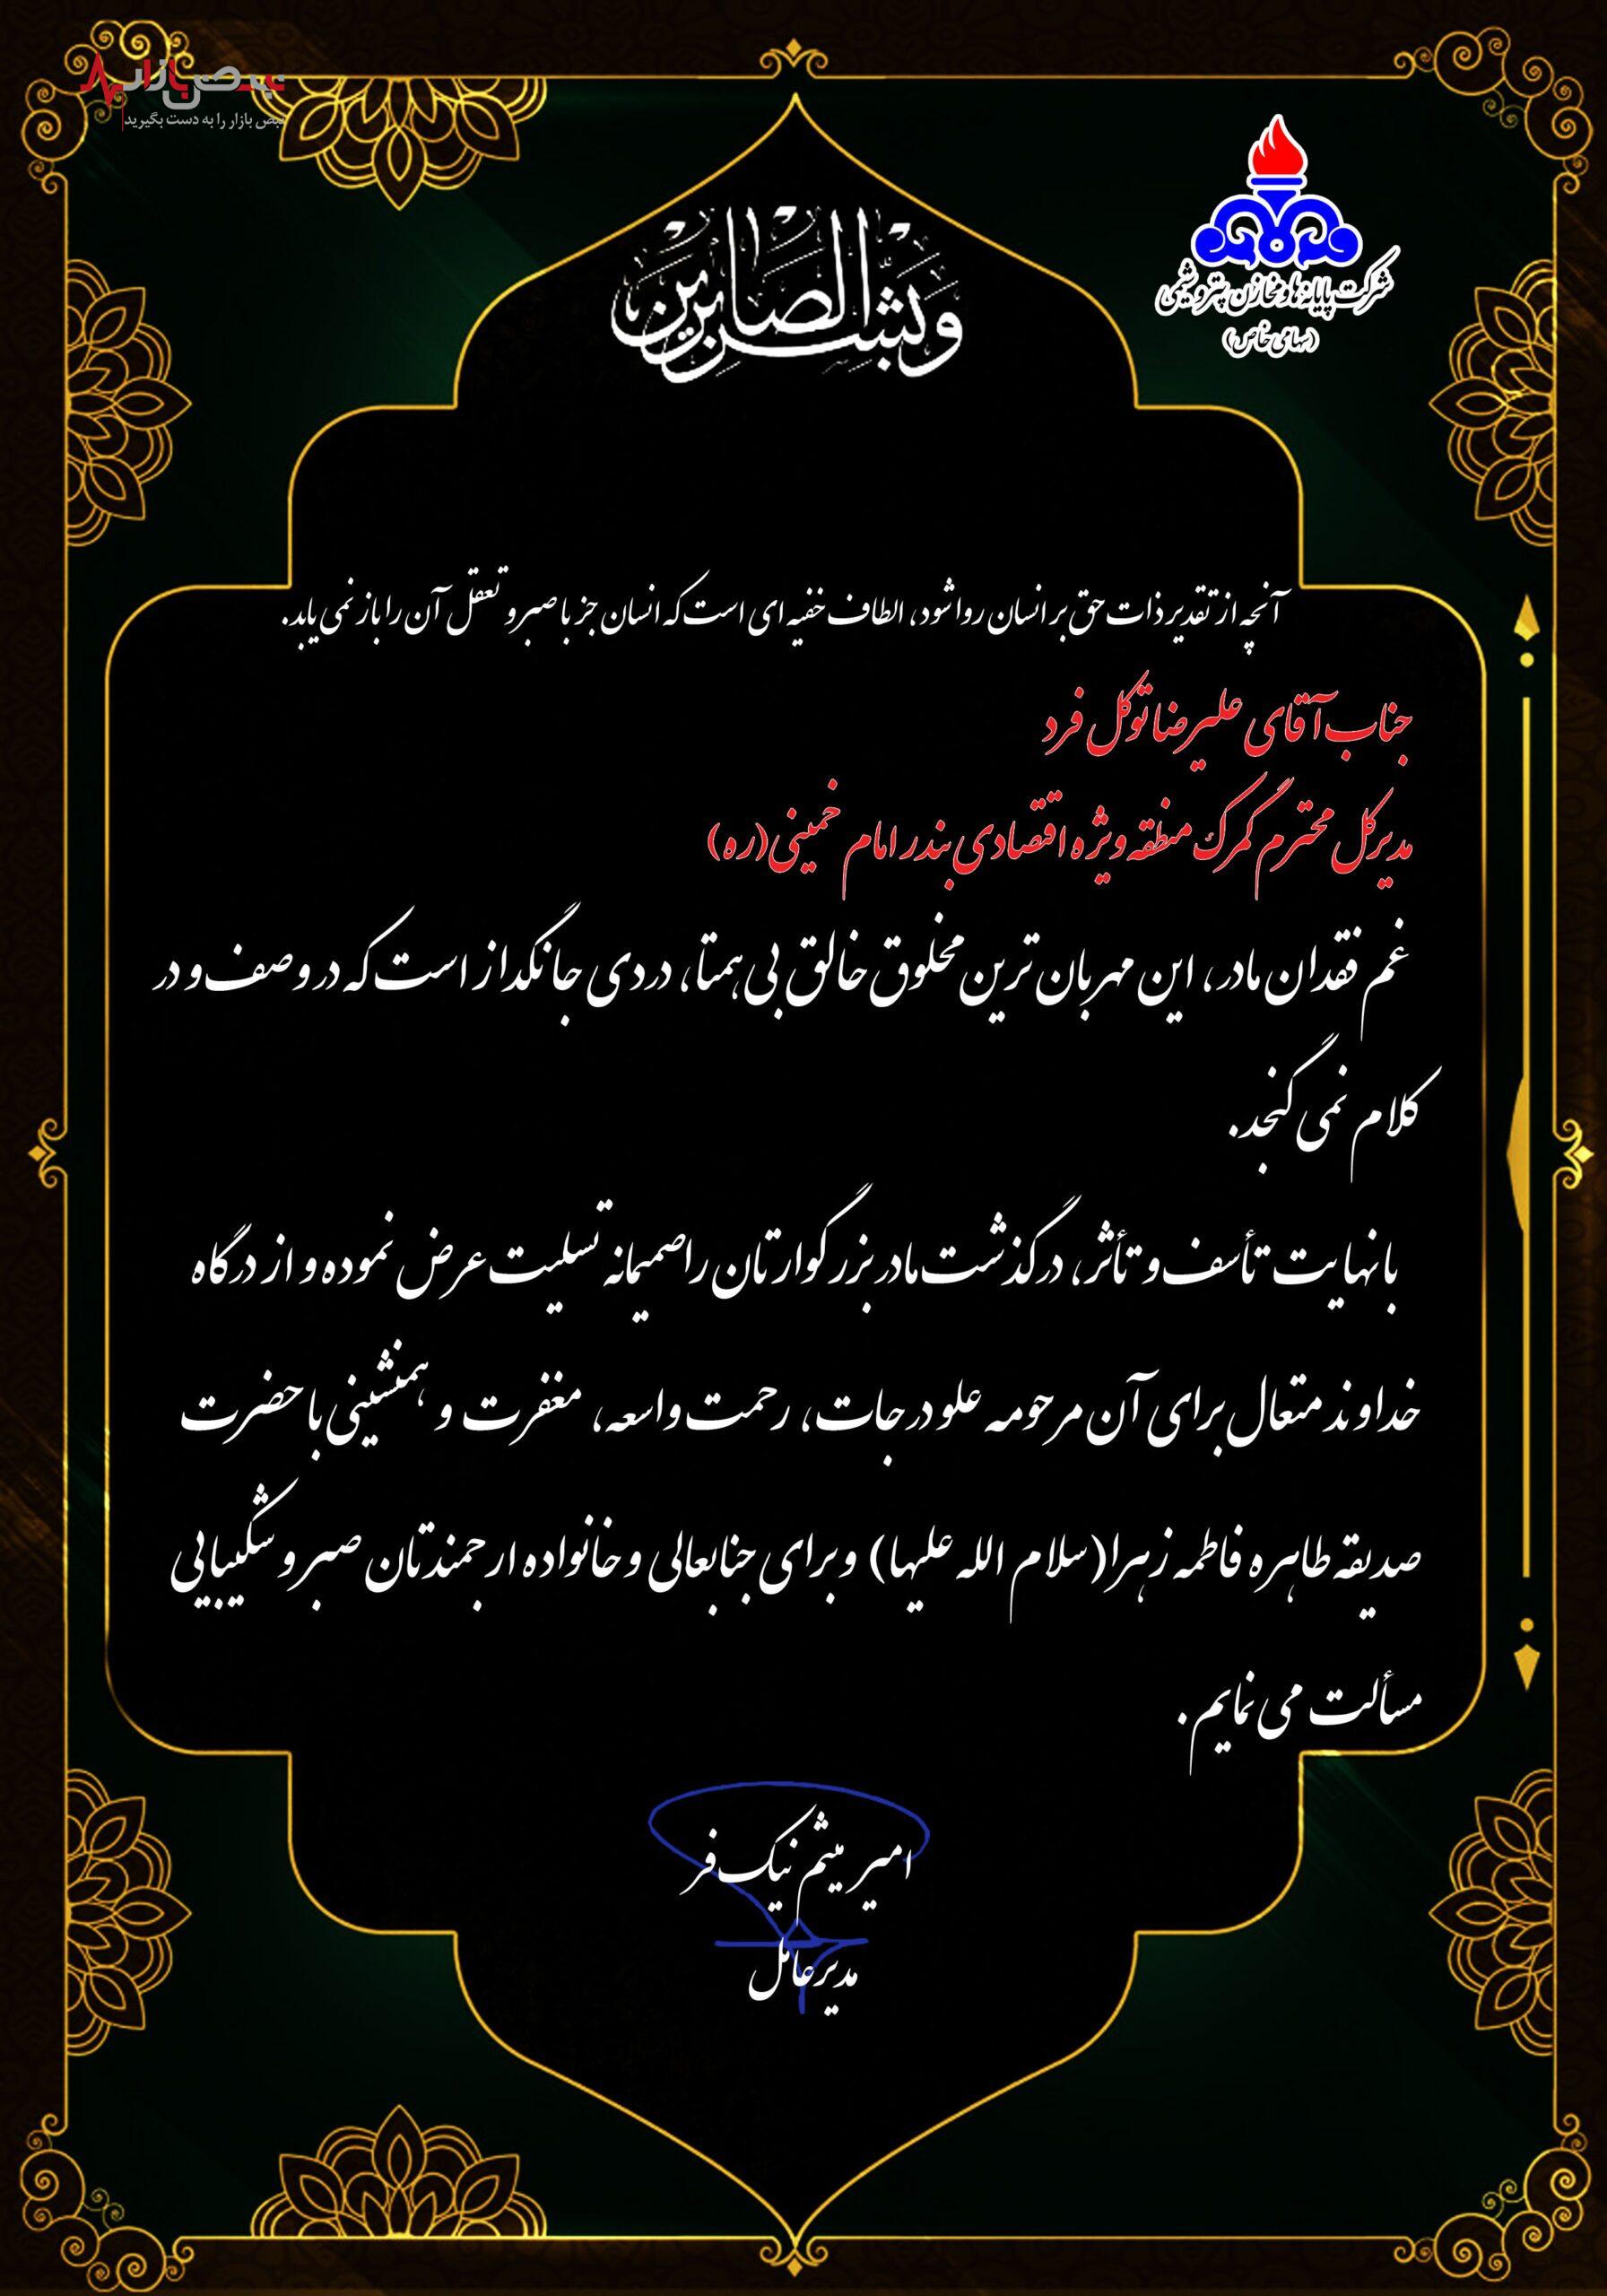 نبض بازار
نبض بازار را به دست بگیرید
شرکت پایانه ها و مخازن پتروشیمی
(سهامی خاص)
وبشر الصابرین
آنچه از تقدیر ذات حق بر انسان روا شود، الطاف خفیه ای است که انسان جز با صبر و تعقل آن را باز نمی یابد.
جناب آقای علیرضا توکل فرد
مدیرکل محترم گمرک منطقه ویژه اقتصادی بندر امام خمینی(ره)
غم فقدان مادر، این مهربان ترین مخلوق خالق بی همتا، دردی جانگداز است که در وصف و در
کلام نمی گنجد.
با نهایت تأسف و تأثر، درگذشت مادر بزرگوارتان را صمیمانه تسلیت عرض نموده و از درگاه
خداوند متعال برای آن مرحومه علو درجات، رحمت واسعه، مغفرت و همنشینی با حضرت
صدیقه طاهره فاطمه زهرا(سلام الله علیها) و برای جنابعالی و خانواده ارجمندتان صبر و شکیبایی
مسألت می نمایم.
امیر میثم نیک فر
مدیرعامل